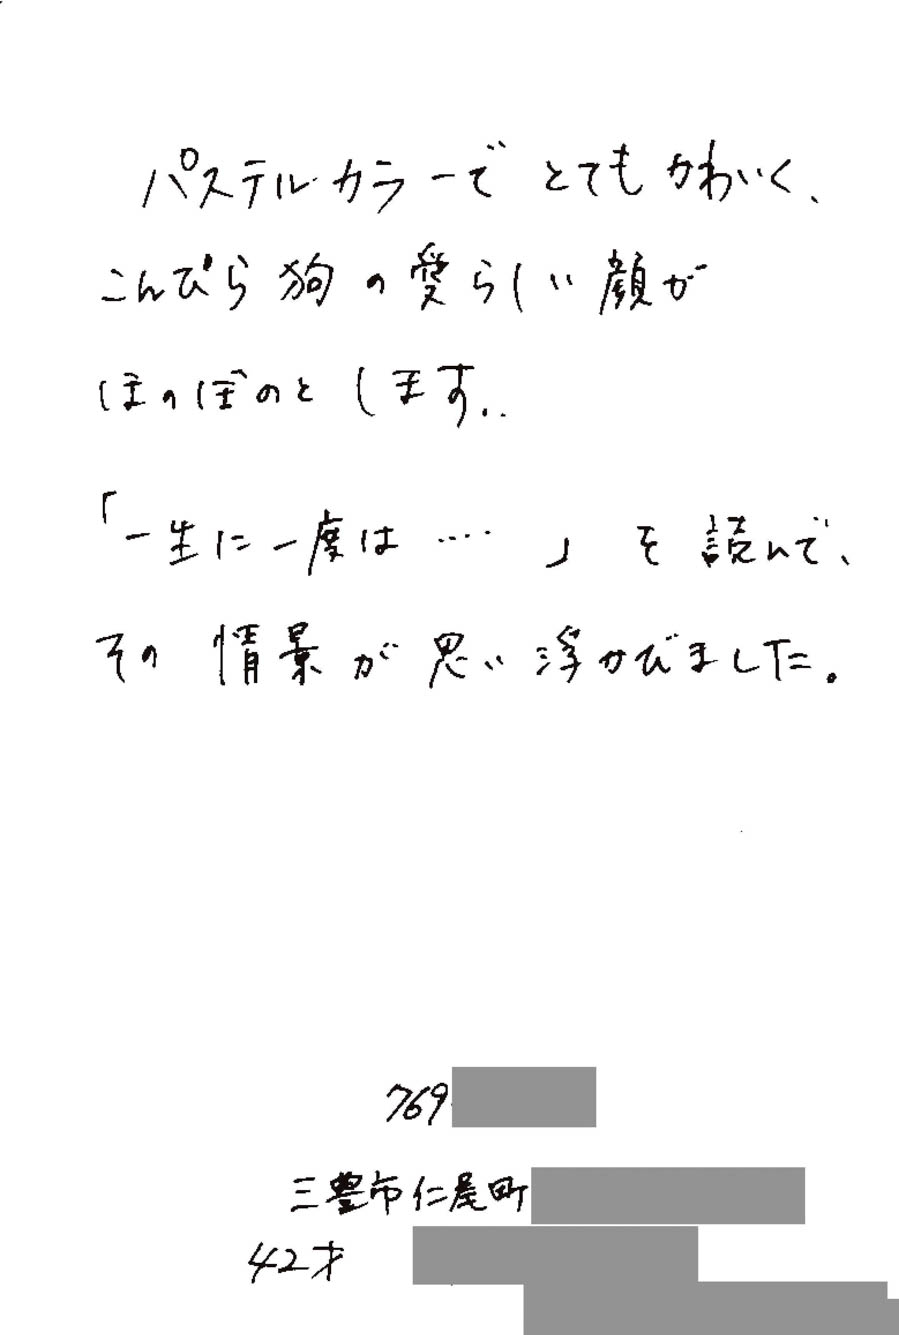 パステルカラーでとてもかわいく、
こんぴら狗の愛らしい顔が
ほのぼのとします..
「一生に一度は‥‥」を読んで、
その情景が思い浮かびました。
769
三豊市仁尾町
42才